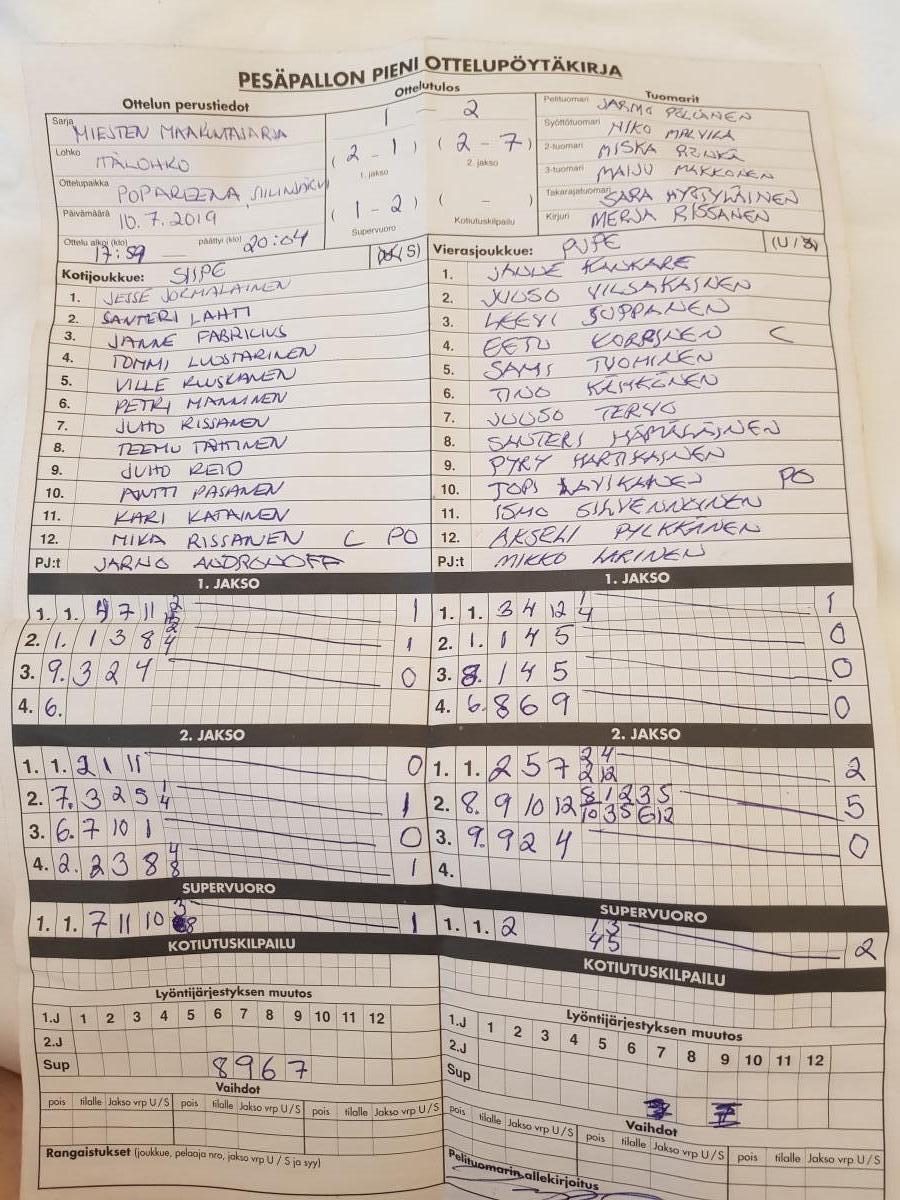 PESÄPALLON PIENI OTTELUPÖYTÄKIRJA
Ottelun perustiedot
Ottelutulos
Tuomarit
Sarja MIESTEN MAAKUNTASARJA
Lohko ITÄLOHKO
Ottelupaikka POPAREENA, SIILINJÄRVI
Päivämäärä 10.7.2019
Ottelu alkoi (klo) 17:59 päättyi (klo) 20:04
1 - 2
(2 - 1) (2 - 7)
1. jakso 2. jakso
(1 - 2) ( - )
Supervuoro Kotiutuskilpailu
Pelituomari JARMO PELLINEN
Syöttötuomari NIKO MALVIKA
2-tuomari MISKA
3-tuomari MAIJU MAKKONEN
Takarajatuomari SARA HYTTYLÄINEN
Kirjuri MERJA RISSANEN
Kotijoukkue: SIIPE (U/S)
1. JESSE JORMALAINEN
2. SANTERI LAHTI
3. JANNE FABRICIUS
4. TOMMI LUOSTARINEN
5. VILLE RUUSKANEN
6. PETRI MANNINEN
7. JUHO RISSANEN
8. TEEMU TAHTINEN
9. JUHO REID
10. ANTTI PASANEN
11. KARI KATAINEN
12. MIKA RISSANEN C PO
PJ:t JARNO ANDRONOFF
Vierasjoukkue: PUPE (U/S)
1. JANNE KANKARE
2. JUUSO VILSAKAINEN
3. LEEVI SUPPANEN
4. EETU KORPINEN C
5. SAMI TUOMINEN
6. TINO
7. JUUSO TERVO
8. SANTERI HÄMÄLÄINEN
9. PYRY HARTIKAINEN
10. TOPI LAVIKAINEN PO
11. ISMO SILVENNOINEN
12. AKSELI PYLKKÄNEN
PJ:t MIKKO LARINEN
1. JAKSO
1. 1. 4 7 11 1
2. 1. 1 3 8 2 4 1
3. 9. 3 2 4 0
4. 6.
1. JAKSO
1. 1. 3 4 12 1 4 1
2. 1. 1 4 5 0
3. 8. 1 4 5 0
4. 6. 8 6 9 0
2. JAKSO
1. 1. 2 1 11 0
2. 7. 3 2 5 1 4 1
3. 6. 7 10 1 0
4. 2. 2 3 8 4 8 1
2. JAKSO
1. 1. 2 5 7 2 4 2 12 2
2. 8. 9 10 12 8 1 2 3 5 10 3 5 6 12 5
3. 9. 9 2 4 0
4.
SUPERVUORO
1. 1. 7 11 10 3 8 1
SUPERVUORO
1. 1. 2 1 3 4 5 2
KOTIUTUSKILPAILU
KOTIUTUSKILPAILU
Lyöntijärjestyksen muutos
1.J 1 2 3 4 5 6 7 8 9 10 11 12
2.J
Sup 8 9 6 7
Vaihdot
pois tilalle Jakso vrp U/S pois tilalle Jakso vrp U/S pois tilalle Jakso vrp U/S
Rangaistukset (joukkue, pelaaja nro, jakso vrp U / S ja syy)
Lyöntijärjestyksen muutos
1.J 1 2 3 4 5 6 7 8 9 10 11 12
2.J
Sup
Vaihdot
pois tilalle Jakso vrp U/S pois tilalle Jakso vrp U/S pois tilalle Jakso vrp U/S
Pelituomarin allekirjoitus